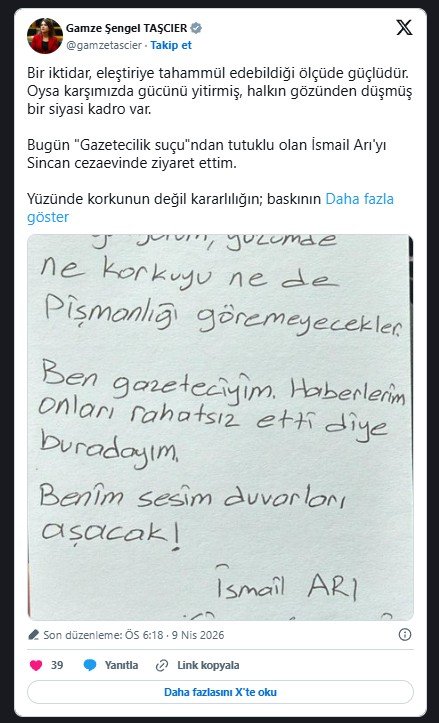 Gamze Şengel TAŞCIER
@gamzetascier · Takip et
Bir iktidar, eleştiriye tahammül edebildiği ölçüde güçlüdür.
Oysa karşımızda gücünü yitirmiş, halkın gözünden düşmüş
bir siyasi kadro var.
Bugün "Gazetecilik suçu"ndan tutuklu olan İsmail Arı'yı
Sincan cezaevinde ziyaret ettim.
Yüzünde korkunun değil kararlılığın; baskının Daha fazla
göster
yüzümde
ne korkuyu ne de
Pişmanlığı göremeyecekler.
Ben gazeteciyim. Haberlerim
onları rahatsız etti diye
buradayım.
Benim sesim duvarları
aşacak!
İsmail ARI
Son düzenleme: ÖS 6:18 · 9 Nis 2026
39 Yanıtla Link kopyala
Daha fazlasını X'te oku